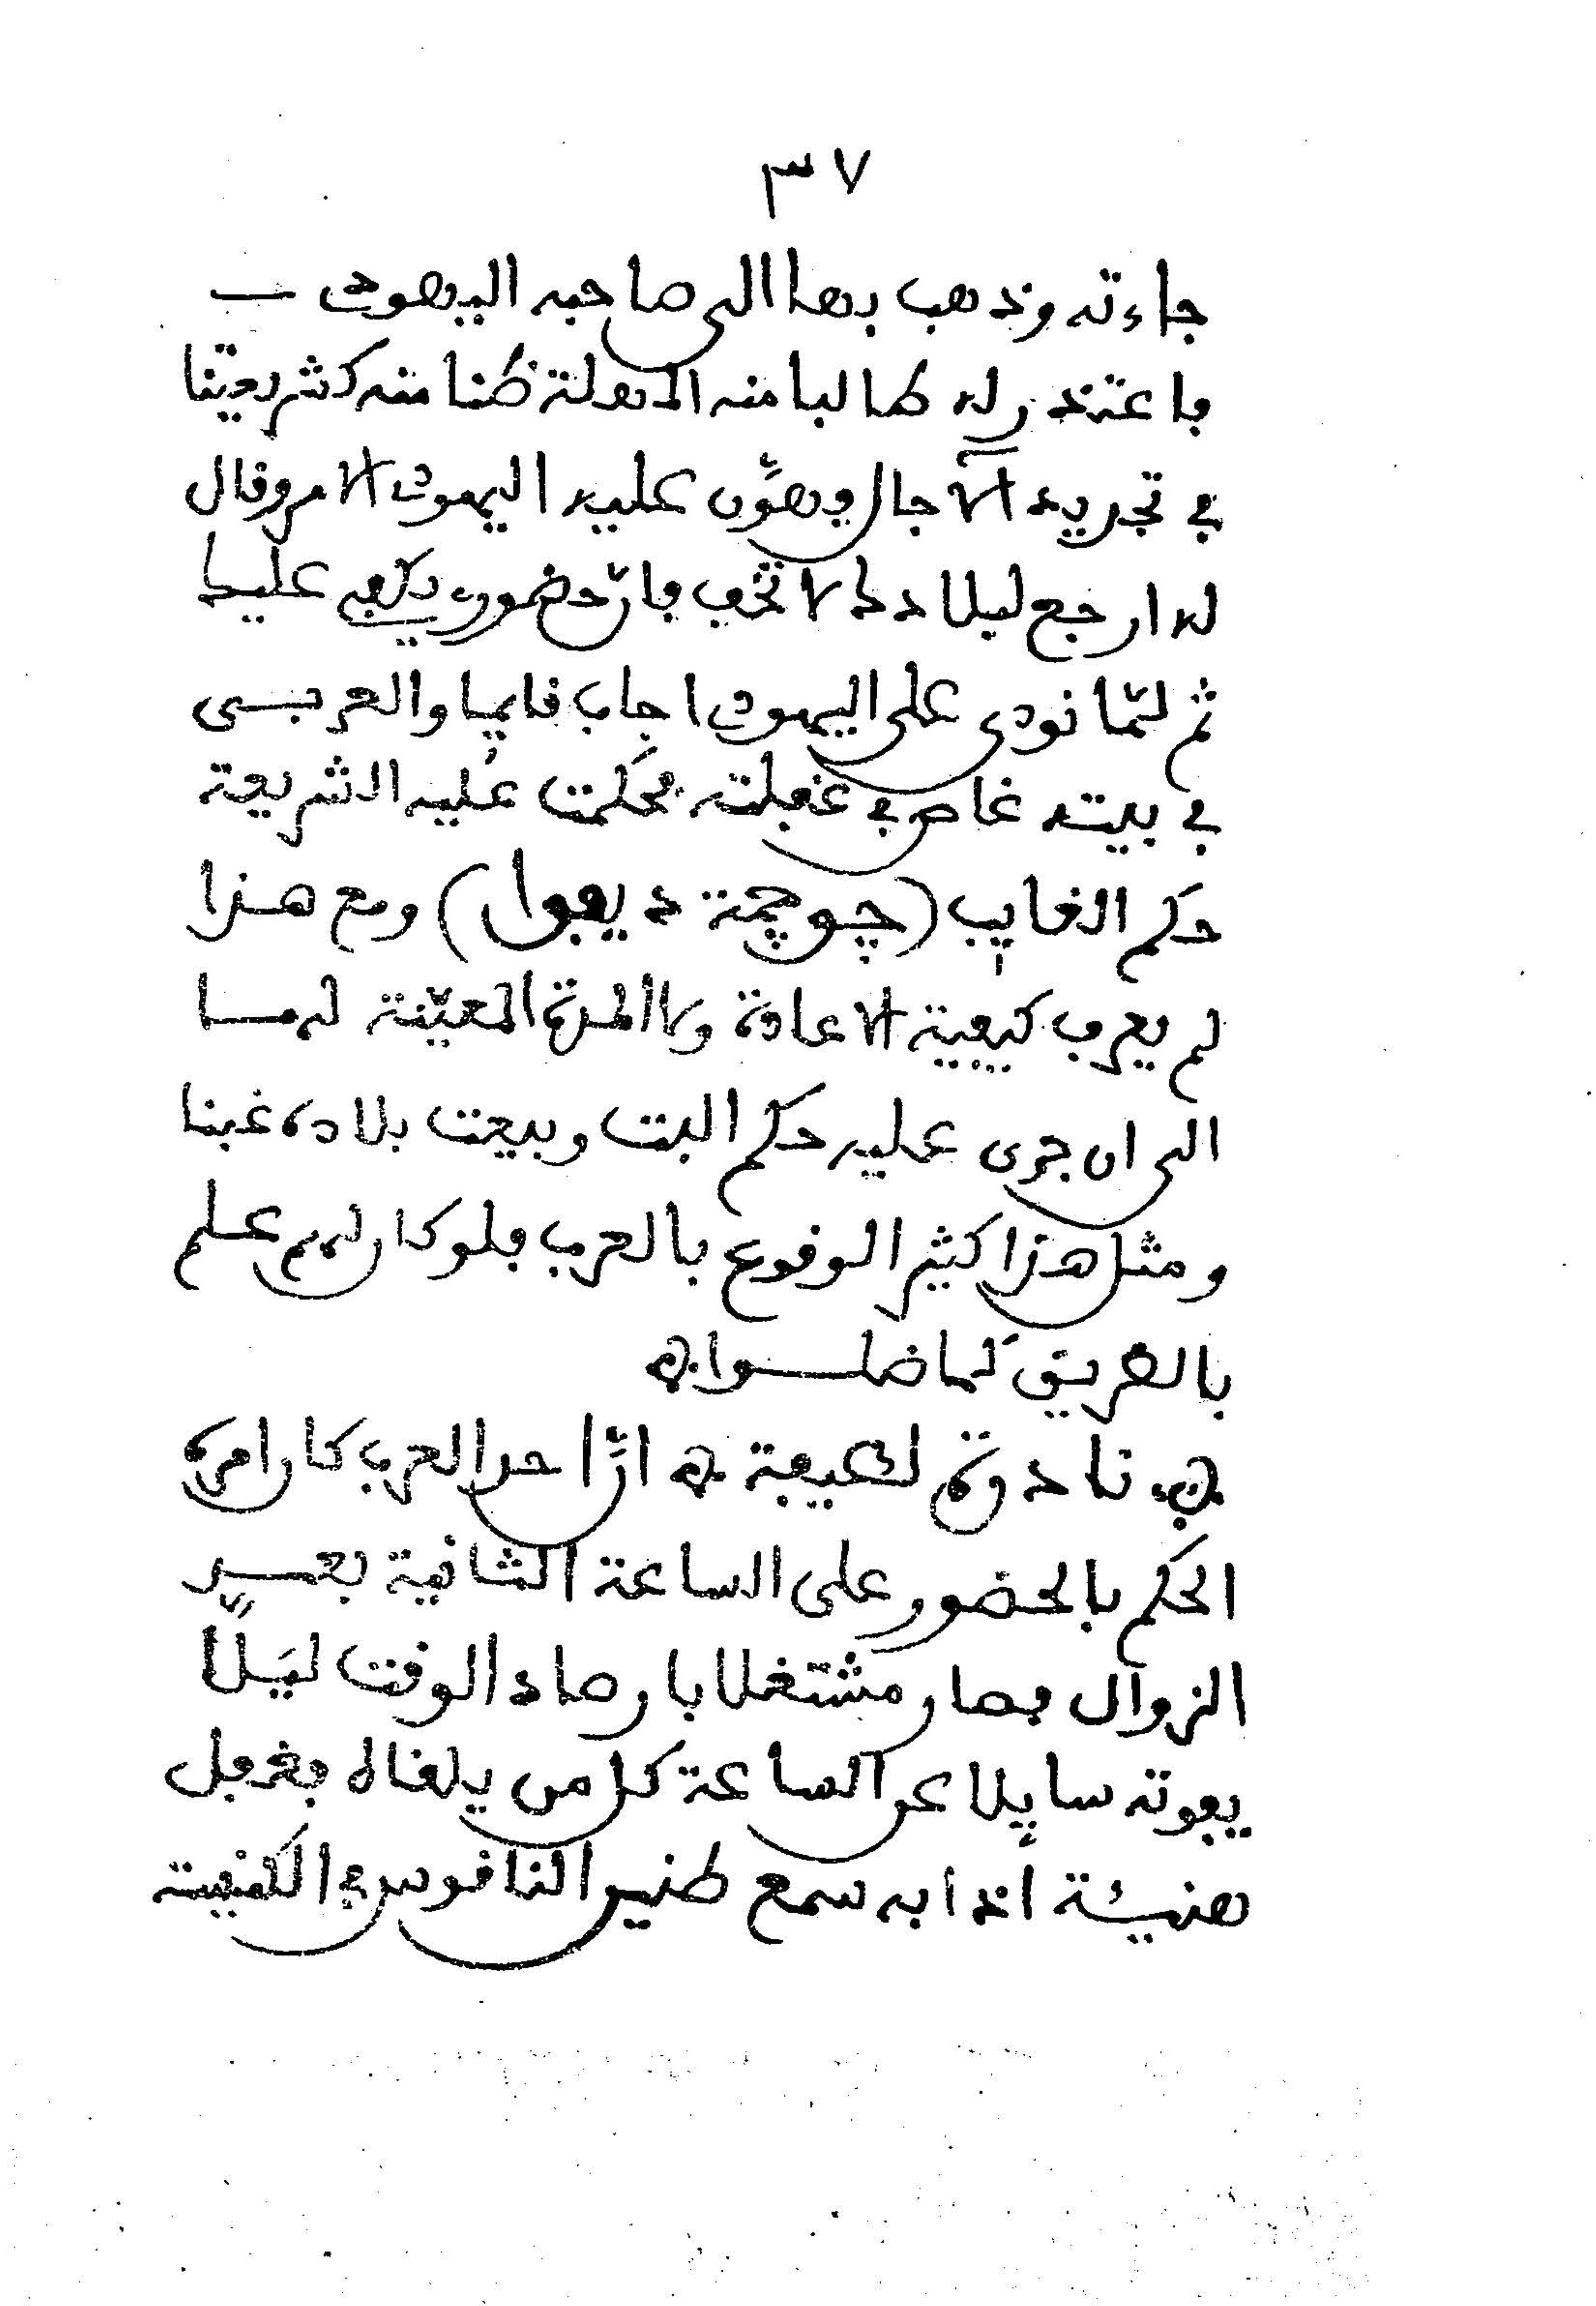 ٣٧
جاءته وذهب بها الى صاحبه اليهودي
فاعتذر له طالبا منه المهلة ظنا منه كشريعتنا
في تجريد الآجال وهوّن عليه اليهودي الامر وقال
له ارجع لبلادك لا تخف فانّ حضوري يكفي عليك
ثم لمّا نودي على اليهودي اجاب قايما والعربي
في بيته غاص في غفلته فحكمت عليه الشريعة
حكم الغايب (جوجمة ديفوا) ومع هذا
لم يعرف كيفية الاعادة ولا المدة المعيّنة لها
الى ان جرى عليه حكم البت وبيعت بلاده غبنا
ومثل هذا كثير الوقوع بالعرب فلو كان لهم علم
بالطريق لما ضلوا
نادرة لطيفة انّ احد العرب كان امره
الحكم بالحضور على الساعة الثانية بعد
الزوال فصار مشتغلا بارصاد الوقت ليلّا
يفوته سايلا عن الساعة كل من يلقاه فغفل
هنيئة اذا به سمع طنين الناقوس في الكنيسة